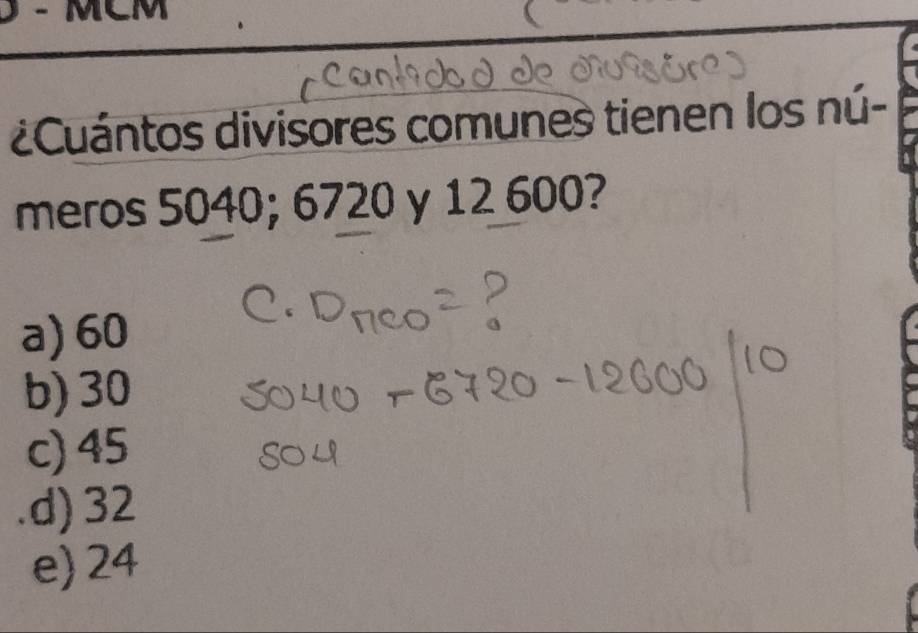 - MCM
(Cantidad de divisores)
¿Cuántos divisores comunes tienen los nú-
meros 5040; 6720 y 12 600?
C. D MCD = ?
a) 60
b) 30
5040 - 6720 - 12600 | 10
c) 45
504
.d) 32
e) 24